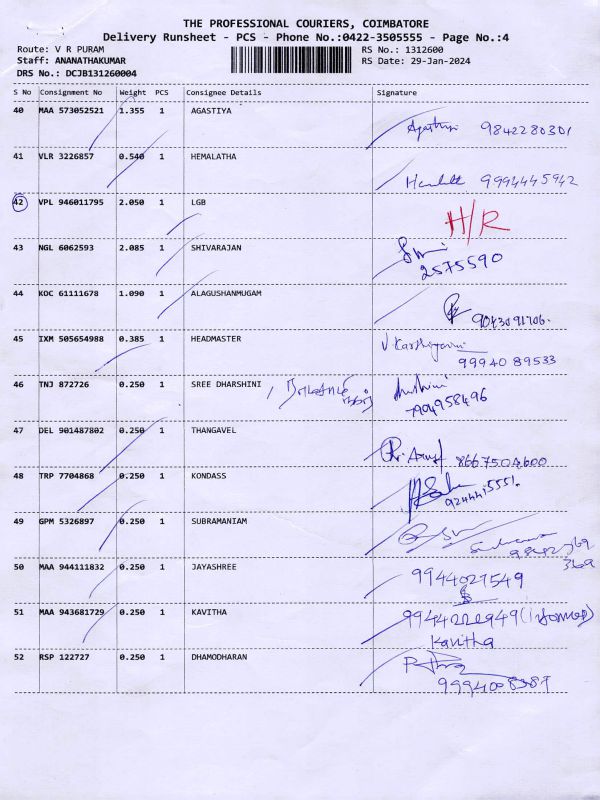 THE PROFESSIONAL COURIERS, COIMBATORE
Delivery Runsheet - PCS - Phone No.:0422-3505555 - Page No.:4
Route: V R PURAM
RS No.: 1312600
Staff: ANANATHAKUMAR
RS Date: 29-Jan-2024
DRS No.: DCJB131260004
S No Consignment No Weight PCS Consignee Details Signature
40 MAA 573052521 1.355 1 AGASTIYA
9842280301
41 VLR 3226857 0.540 1 HEMALATHA
9994445942
42 VPL 946011795 2.050 1 LGB
H/R
43 NGL 6062593 2.085 1 SHIVARAJAN
2575590
44 KOC 61111678 1.090 1 ALAGUSHANMUGAM
45 IXM 505654988 0.385 1 HEADMASTER
9994089533
46 TNJ 872726 0.250 1 SREE DHARSHINI
7904958496
47 DEL 901487802 0.250 1 THANGAVEL
8667504600
48 TRP 7704868 0.250 1 KONDASS
49 GPM 5326897 0.250 1 SUBRAMANIAM
50 MAA 944111832 0.250 1 JAYASHREE
9944027549
51 MAA 943681729 0.250 1 KAVITHA
9944222949
Kavitha
52 RSP 122727 0.250 1 DHAMODHARAN
9994008387